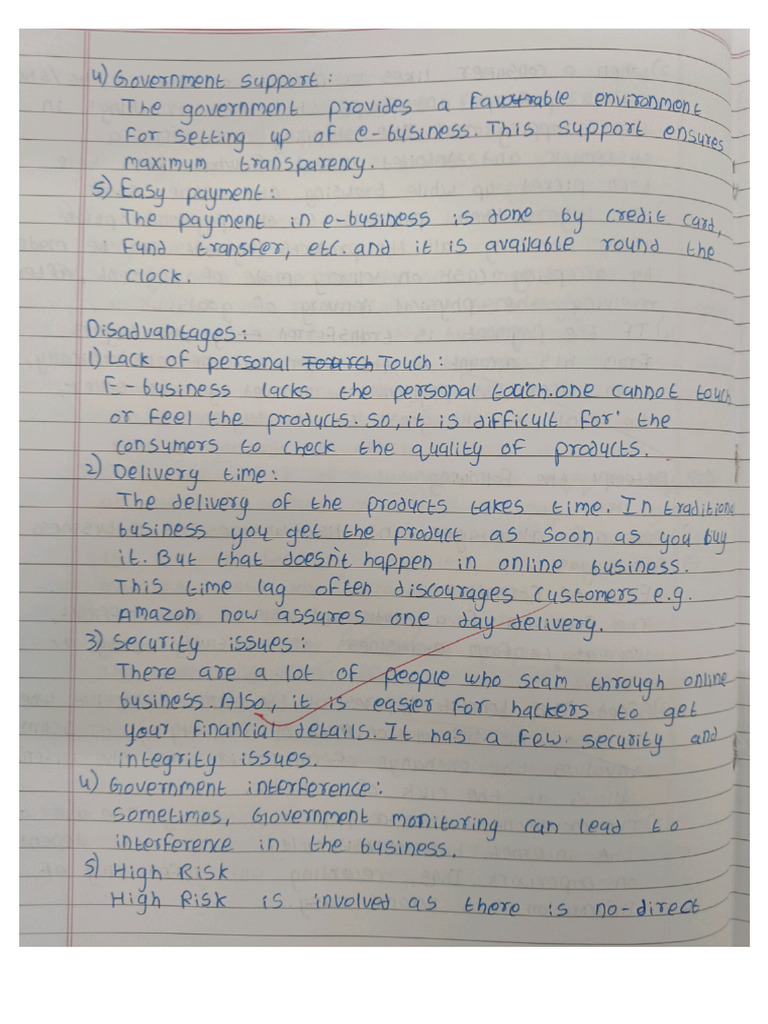 4) Government support:
The government provides a favourable environment
for setting up of e-business. This support ensures
maximum transparency.
5) Easy payment:
The payment in e-business is done by credit card,
fund transfer, etc. and it is available round the
clock.
Disadvantages:
1) Lack of personal Touch:
E-business lacks the personal touch. one cannot touch
or feel the products. So, it is difficult for the
consumers to check the quality of products.
2) Delivery time:
The delivery of the products takes time. In traditional
business you get the product as soon as you buy
it. But that doesn't happen in online business.
This time lag often discourages customers e.g.
Amazon now assures one day delivery.
3) Security issues:
There are a lot of people who scam through online
business. Also, it is easier for hackers to get
your financial details. It has a few security and
integrity issues.
4) Government interference:
Sometimes, Government monitoring can lead to
interference in the business.
5) High Risk
High Risk is involved as there is no-direct